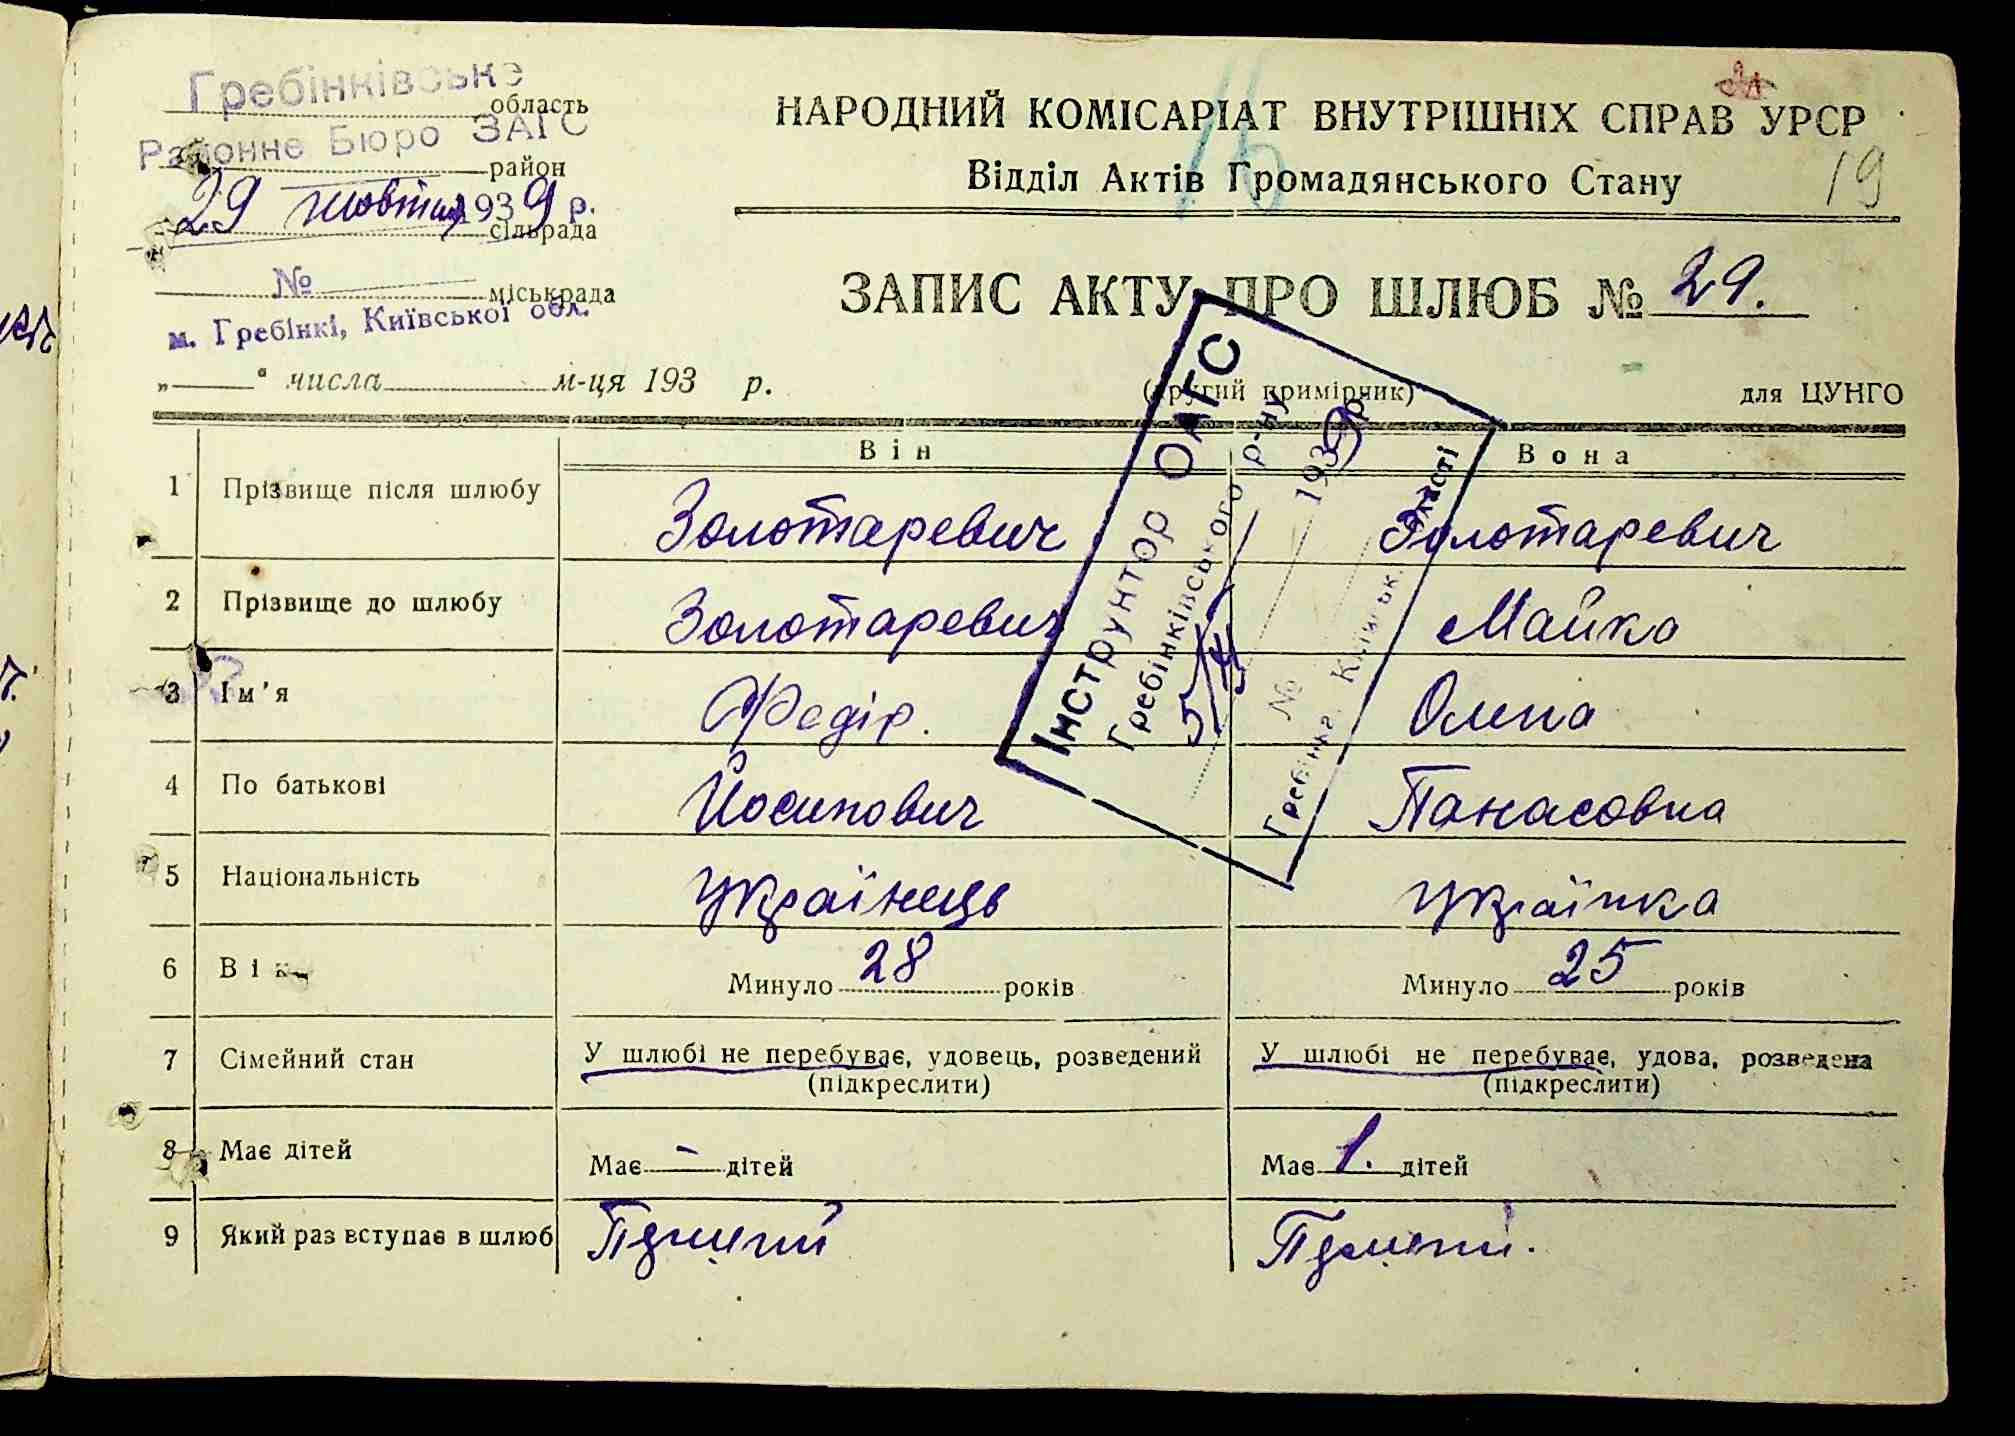 Гребінківське
область
Районне Бюро ЗАГС
район
29 жовтня 1939 р.
сільрада
№
міськрада
м. Гребінкі, Київської обл.
„ “ числа м-ця 193 р.
НАРОДНИЙ КОМІСАРІАТ ВНУТРІШНІХ СПРАВ УРСР
Відділ Актів Громадянського Стану
19
ЗАПИС АКТУ ПРО ШЛЮБ № 29.
(другий примірник)
для ЦУНГО
Інструнтор ОАГС
Гребінківського р-ну
1939 р
№
Гребінка, Київськ. області
Він Вона
1 Прізвище після шлюбу Золотаревич Золотаревич
2 Прізвище до шлюбу Золотаревич Майка
3 Ім'я Федір. Олена
4 По батькові Йосипович Панасовна
5 Національність Українець Українка
6 Вік Минуло 28 років Минуло 25 років
7 Сімейний стан У шлюбі не перебуває, удовець, розведений У шлюбі не перебуває, удова, розведена
(підкреслити) (підкреслити)
8 Має дітей Має - дітей Має 1. дітей
9 Який раз вступає в шлюб